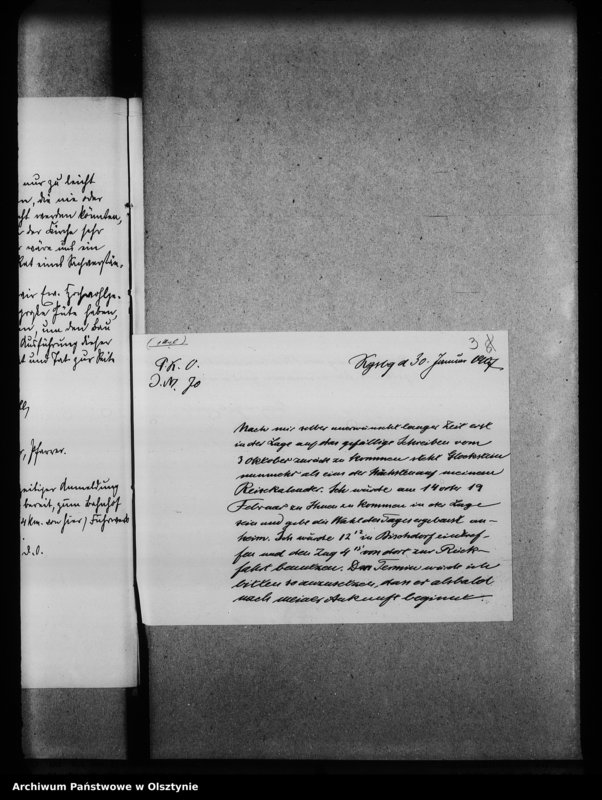 nur zu leicht
die nie oder
werden könnten,
der Kirche sehr
wäre uns ein
Rat eines Sachverstän-
wir Ew. Hochwohlge-
große Güte haben,
um den Bau
Ausführung dieser
und Tat zur Seite
Pfarrer.
zeitiger Anmeldung
bereit, zum Bahnhof
4 km. von hier) Fuhrwerk
3
P. K. O.
J. N. Jo
Kgsbg d 30. Januar 1907
Nach mir selber unerwünscht langer Zeit erst
in der Lage auf das gefällige Schreiben vom
3 Oktober zurück zu kommen steht
nunmehr als eine der Nächsten auf meinem
Reisekalender. Ich würde am 14 oder 19
Februar zu Ihnen zu kommen in der Lage
sein und gebe die Wahl des Tages ergebenst an-
heim. Ich würde 12 in Bischdorf eintref-
fen und den Zug 4 von dort zur Rück-
fahrt benutzen. Den Termin würde ich
bitten so anzusetzen, dass er alsbald
nach meiner Ankunft beginnt
Archiwum Państwowe w Olsztynie